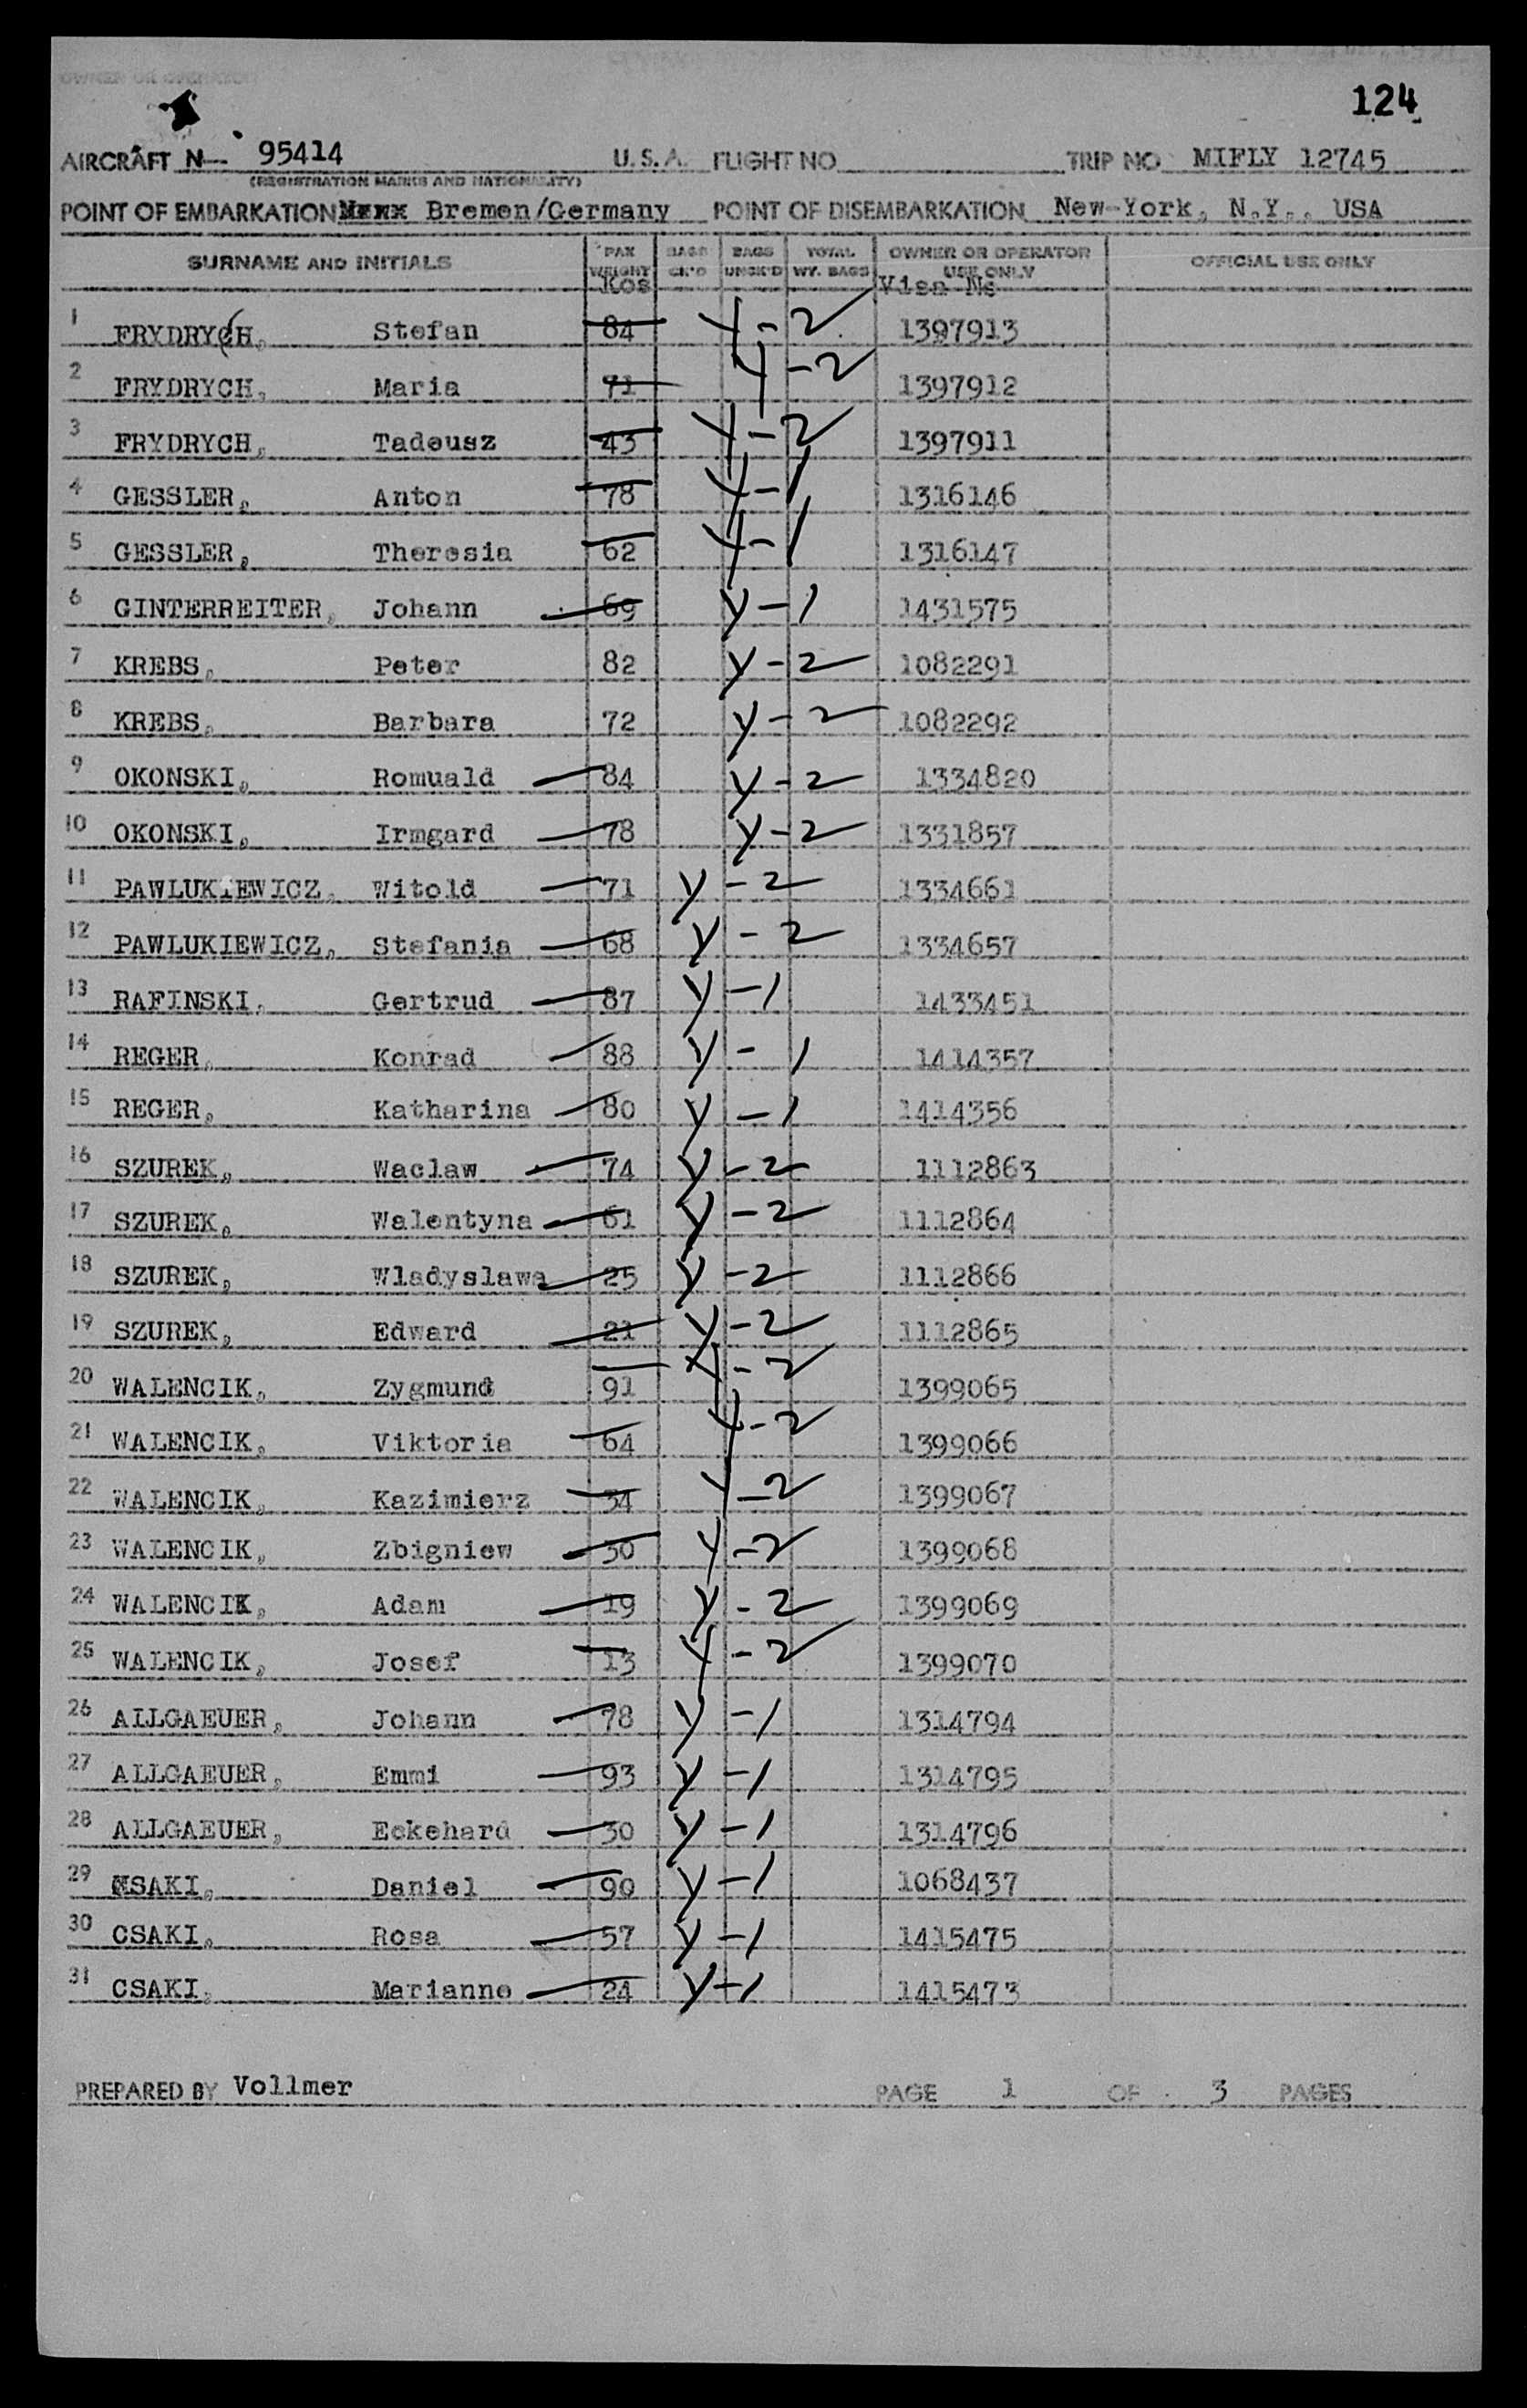 OWNER OR OPERATOR
124
AIRCRAFT N- 95414 U.S.A. FLIGHT NO TRIP NO MIFLY 12745
(REGISTRATION MARKS AND NATIONALITY)
POINT OF EMBARKATION Bremen/Germany POINT OF DISEMBARKATION New-York, N.Y., USA
SURNAME AND INITIALS PAX WEIGHT KOS BAGS CK'D BAGS UNCK'D TOTAL WT. BAGS OWNER OR OPERATOR USE ONLY Visa No OFFICIAL USE ONLY
1 FRYDRYCH, Stefan 84 Y-2 1397913
2 FRYDRYCH, Maria 71 Y-2 1397912
3 FRYDRYCH, Tadeusz 43 Y-2 1397911
4 GESSLER, Anton 78 Y-1 1316146
5 GESSLER, Theresia 62 Y-1 1316147
6 GINTERREITER, Johann 69 Y-1 1431575
7 KREBS, Peter 82 Y-2 1082291
8 KREBS, Barbara 72 Y-2 1082292
9 OKONSKI, Romuald 84 Y-2 1334820
10 OKONSKI, Irmgard 78 Y-2 1331857
11 PAWLUKIEWICZ, Witold 71 Y-2 1334661
12 PAWLUKIEWICZ, Stefania 68 Y-2 1334657
13 RAFINSKI, Gertrud 87 Y-1 1433451
14 REGER, Konrad 88 Y-1 1414357
15 REGER, Katharina 80 Y-1 1414356
16 SZUREK, Waclaw 74 Y-2 1112863
17 SZUREK, Walentyna 61 Y-2 1112864
18 SZUREK, Wladyslawa 25 Y-2 1112866
19 SZUREK, Edward 21 Y-2 1112865
20 WALENCIK, Zygmund 91 Y-2 1399065
21 WALENCIK, Viktoria 64 Y-2 1399066
22 WALENCIK, Kazimierz 34 Y-2 1399067
23 WALENCIK, Zbigniew 30 Y-2 1399068
24 WALENCIK, Adam 19 Y-2 1399069
25 WALENCIK, Josef 13 Y-2 1399070
26 ALLGAEUER, Johann 78 Y-1 1314794
27 ALLGAEUER, Emmi 93 Y-1 1314795
28 ALLGAEUER, Eckehard 30 Y-1 1314796
29 CSAKI, Daniel 90 Y-1 1068437
30 CSAKI, Rosa 57 Y-1 1415475
31 CSAKI, Marianne 24 Y-1 1415473
PREPARED BY Vollmer PAGE 1 OF 3 PAGES